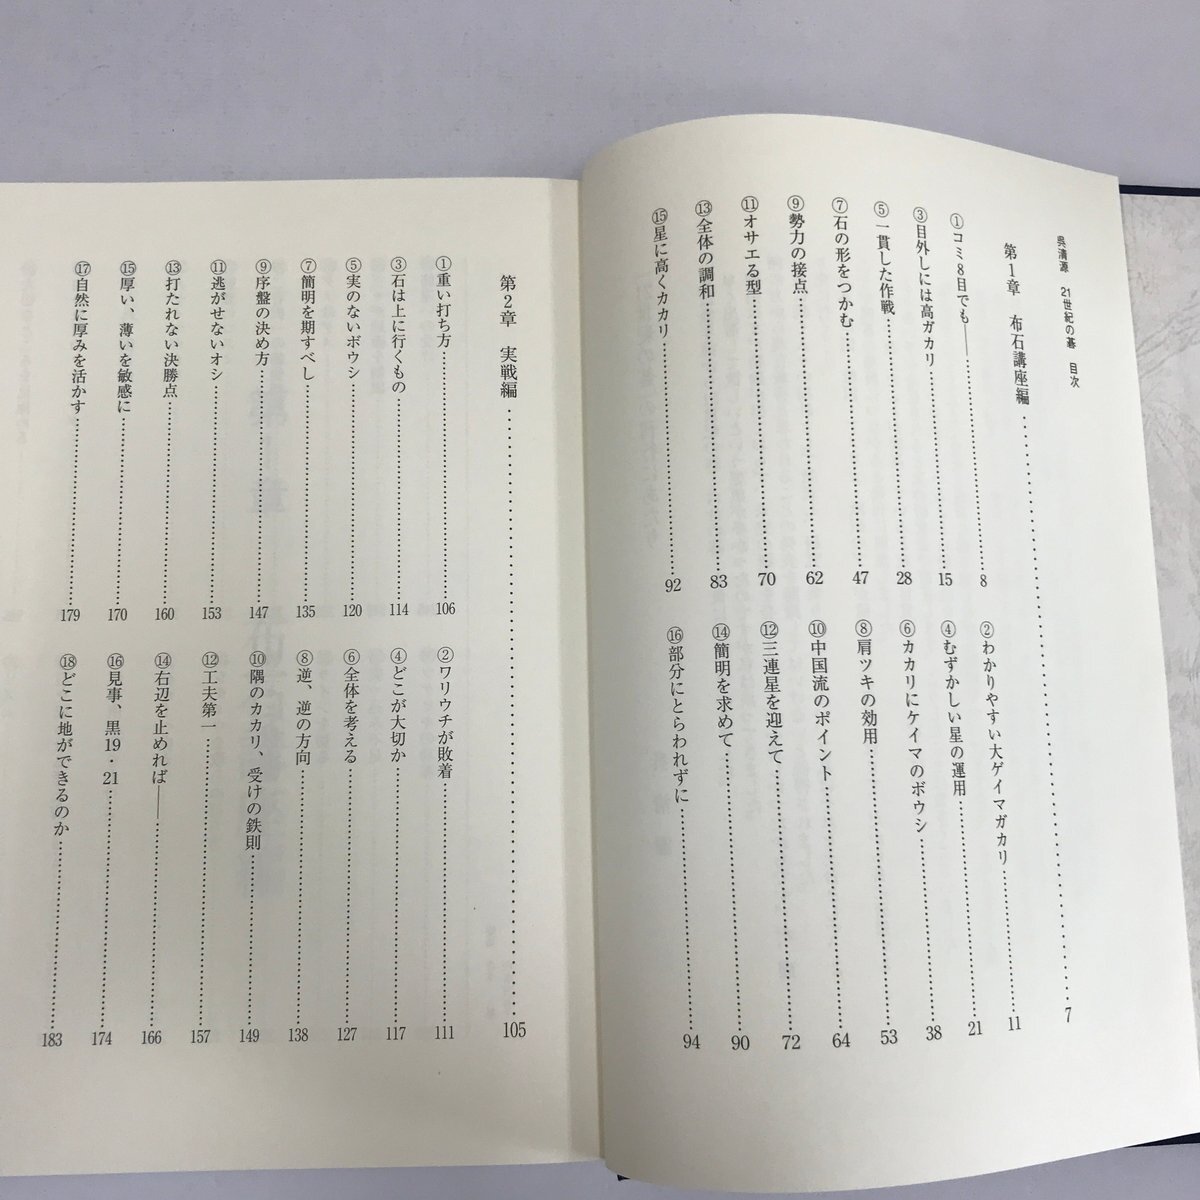 呉清源 21世紀の碁 目次
第1章 布石講座編……7
①コミ8目でも――……8
②わかりやすい大ゲイマガカリ……11
③目外しには高ガカリ……15
④むずかしい星の運用……21
⑤一貫した作戦……28
⑥カカリにケイマのボウシ……38
⑦石の形をつかむ……47
⑧肩ツキの効用……53
⑨勢力の接点……62
⑩中国流のポイント……64
⑪オサエる型……70
⑫三連星を迎えて……72
⑬全体の調和……83
⑭簡明を求めて……90
⑮星に高くカカリ……92
⑯部分にとらわれずに……94
第2章 実戦編……105
①重い打ち方……106
②ワリウチが敗着……111
③石は上に行くもの……114
④どこが大切か……117
⑤実のないボウシ……120
⑥全体を考える……127
⑦簡明を期すべし……135
⑧逆、逆の方向……138
⑨序盤の決め方……147
⑩隅のカカリ、受けの鉄則……149
⑪逃がせないオシ……153
⑫工夫第一……157
⑬打たれない決勝点……160
⑭右辺を止めれば――……166
⑮厚い、薄いを敏感に……170
⑯見事、黒19・21……174
⑰自然に厚みを活かす……179
⑱どこに地ができるのか……183